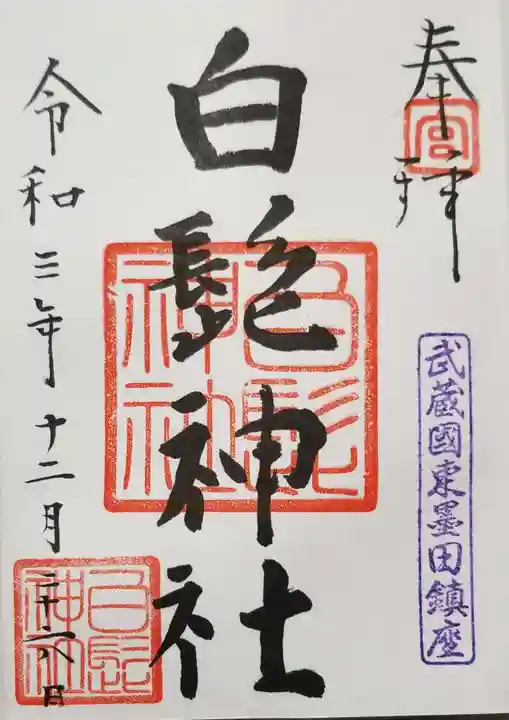 奉拝
宮
武蔵國東墨田鎮座
白髭神社
白髭神社
令和三年十二月二十六日
白髭神社